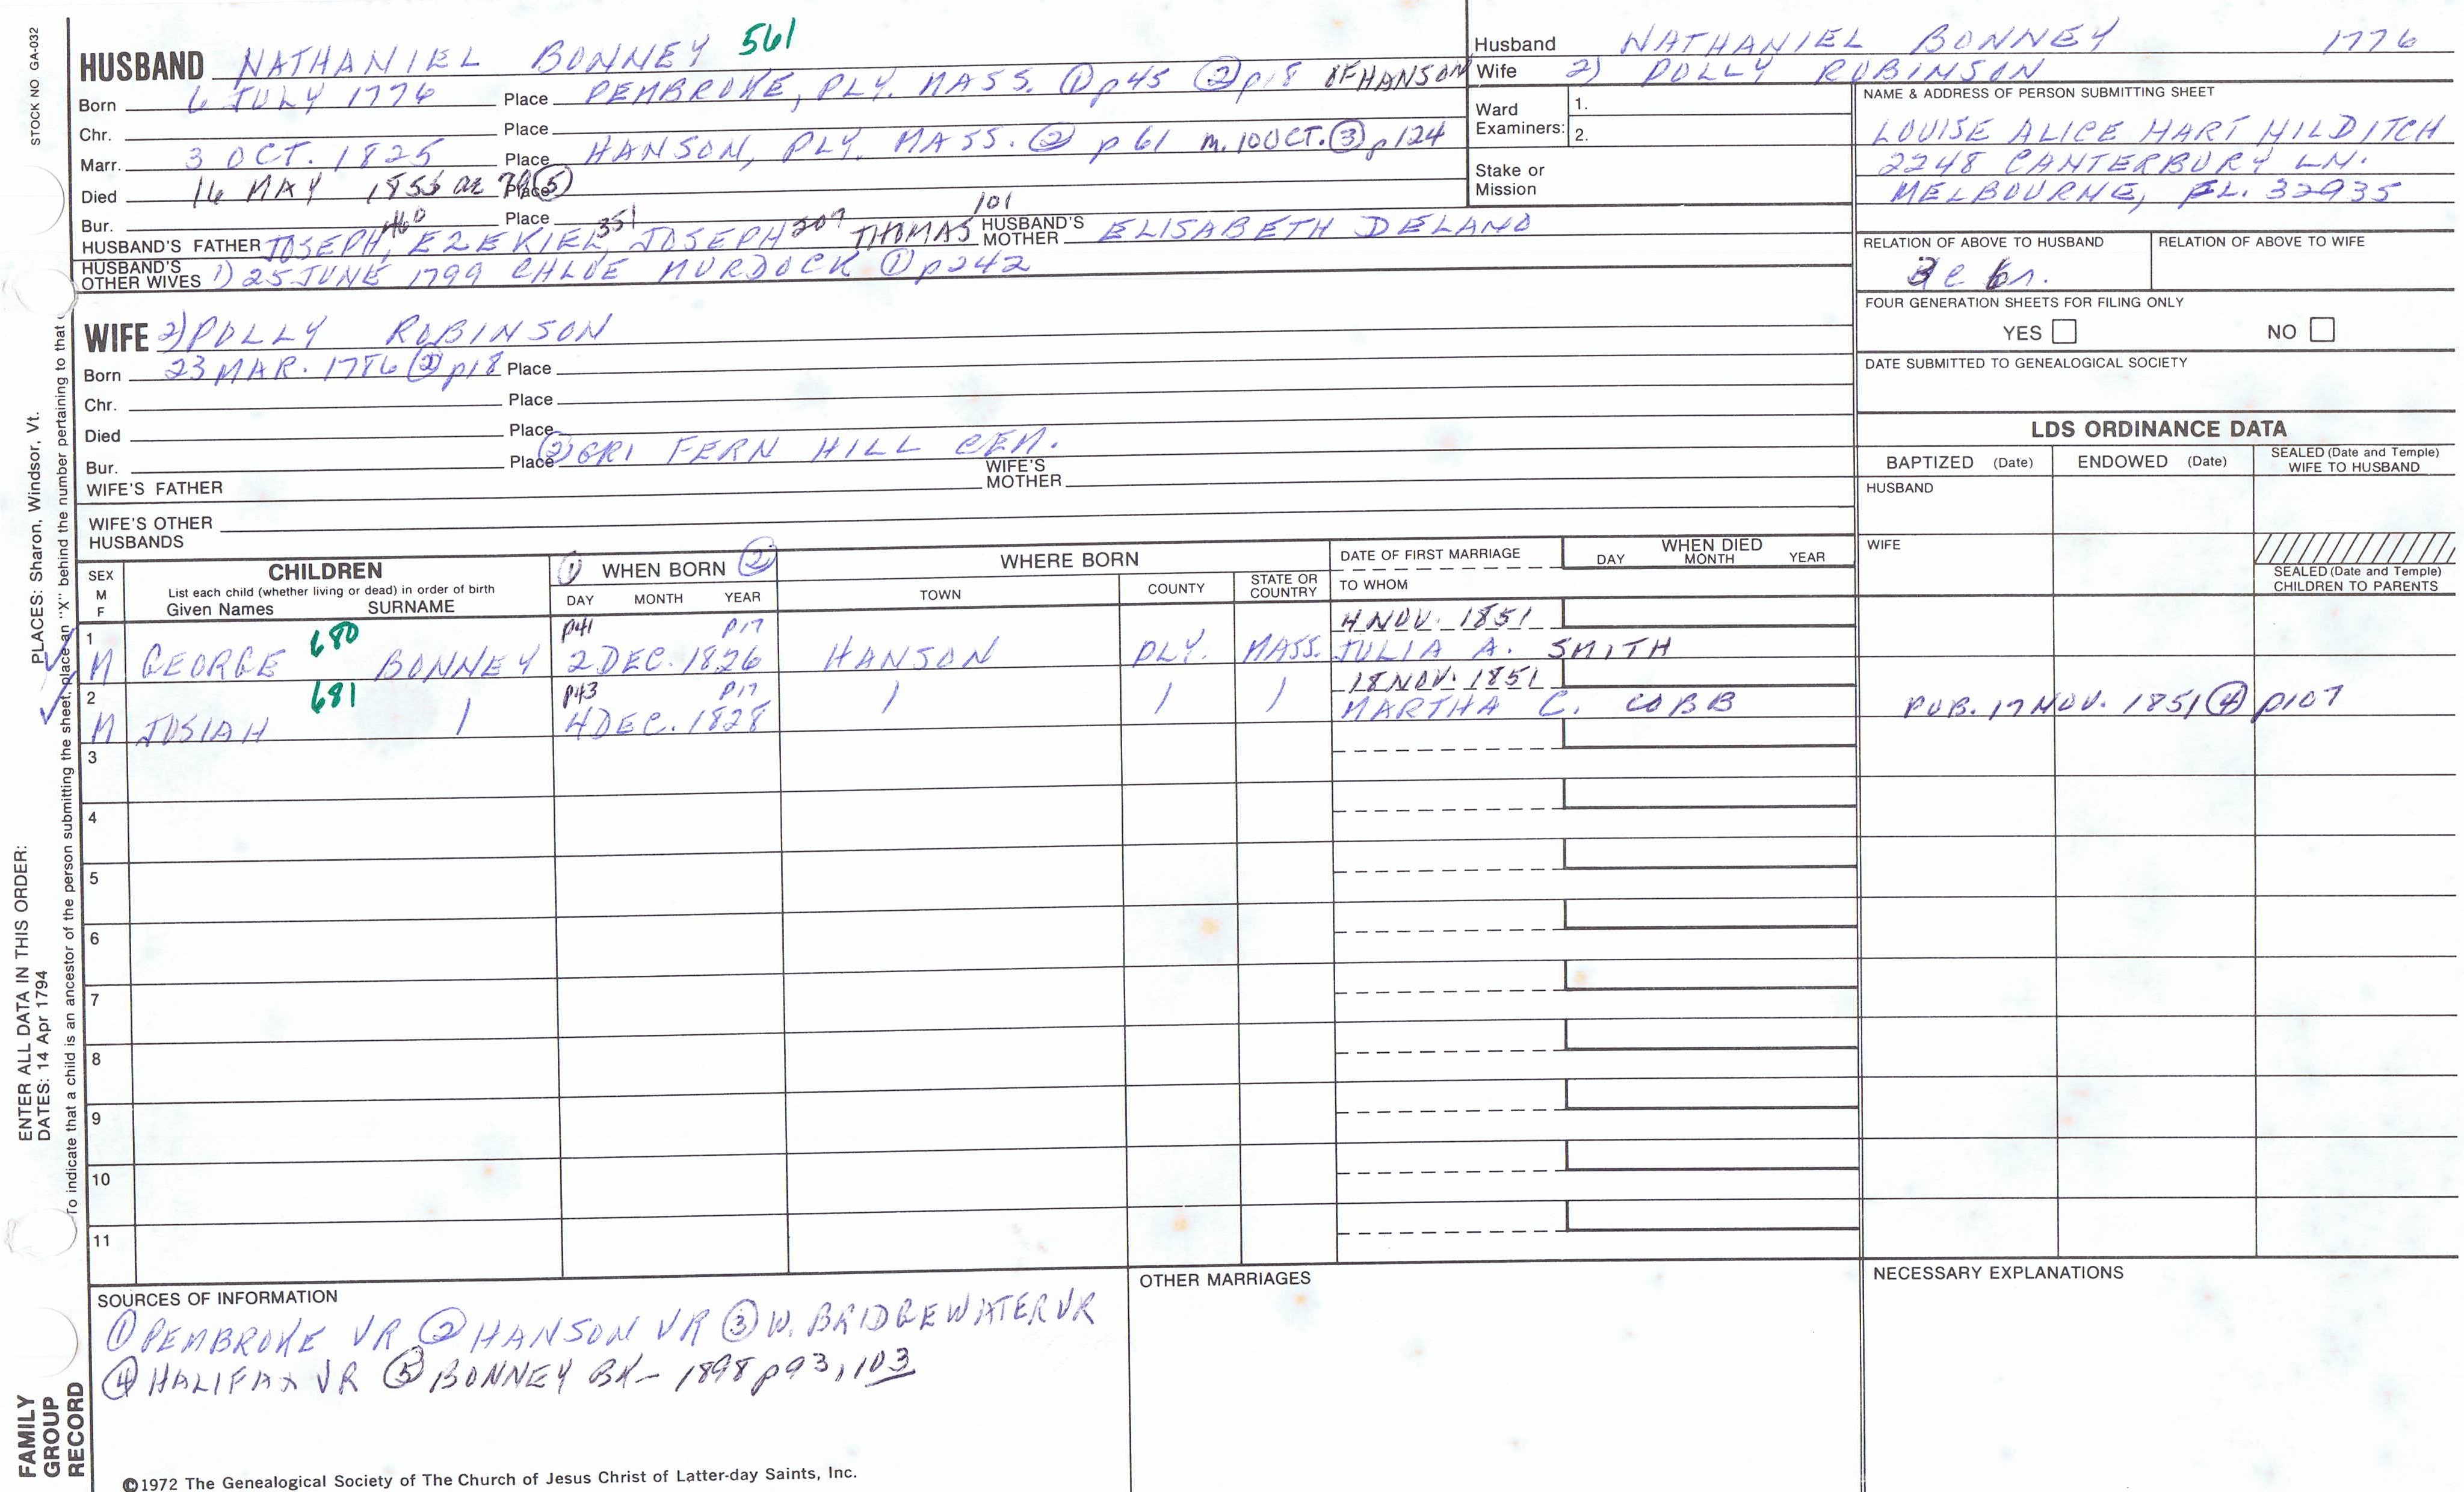 STOCK NO GA-032
HUSBAND NATHANIEL BONNEY 561
Born 6 JULY 1776 Place PEMBROKE, PLY. MASS. ① p45 ② p18 OF HANSON
Chr. Place
Marr. 3 OCT. 1825 Place HANSON, PLY. MASS. ② p 61 m. 10 OCT. ③ p124
Died 16 MAY Place ⑤
Bur. Place
HUSBAND'S FATHER JOSEPH, 460 EZEKIEL, 351 JOSEPH 209 THOMAS 101 HUSBAND'S MOTHER ELISABETH DELANO
HUSBAND'S OTHER WIVES 1) 25 JUNE 1799 CHLOE MURDOCK ① p242
WIFE 2) POLLY ROBINSON
Born 23 MAR. 1786 ② p18 Place
Chr. Place
Died Place
Bur. Place ② GR1 FERN HILL CEM.
WIFE'S FATHER WIFE'S MOTHER
WIFE'S OTHER HUSBANDS
Husband NATHANIEL BONNEY 1776
Wife 2) POLLY ROBINSON
Ward Examiners: 1.
2.
Stake or Mission
NAME & ADDRESS OF PERSON SUBMITTING SHEET
LOUISE ALICE HART HILDITCH
2248 CANTERBURY LN.
MELBOURNE, FL. 32935
RELATION OF ABOVE TO HUSBAND RELATION OF ABOVE TO WIFE
FOUR GENERATION SHEETS FOR FILING ONLY
YES NO
DATE SUBMITTED TO GENEALOGICAL SOCIETY
LDS ORDINANCE DATA
BAPTIZED (Date) ENDOWED (Date) SEALED (Date and Temple) WIFE TO HUSBAND
HUSBAND
WIFE
SEALED (Date and Temple) CHILDREN TO PARENTS
SEX M F
CHILDREN
List each child (whether living or dead) in order of birth
Given Names SURNAME
① WHEN BORN ②
DAY MONTH YEAR
WHERE BORN
TOWN COUNTY STATE OR COUNTRY
DATE OF FIRST MARRIAGE
TO WHOM
WHEN DIED
DAY MONTH YEAR
1 680 P41 P17 4 NOV. 1851
M GEORGE BONNEY 2 DEC. 1826 HANSON PLY. MASS. JULIA A. SMITH
2 681 P43 P17 18 NOV. 1851
M JOSIAH 4 DEC. 1828 MARTHA C. COBB PUB. 17 NOV. 1851 ④ p107
3
4
5
6
7
8
9
10
11
SOURCES OF INFORMATION
① PEMBROKE VR ② HANSON VR ③ W. BRIDGEWATER VR
④ HALIFAX VR ⑤ BONNEY BK– 1898 p93, 103
OTHER MARRIAGES
NECESSARY EXPLANATIONS
©1972 The Genealogical Society of The Church of Jesus Christ of Latter-day Saints, Inc.
FAMILY GROUP RECORD
ENTER ALL DATA IN THIS ORDER:
DATES: 14 Apr 1794
PLACES: Sharon, Windsor, Vt.
To indicate that a child is an ancestor of the person submitting the sheet, place an "X" behind the number pertaining to that